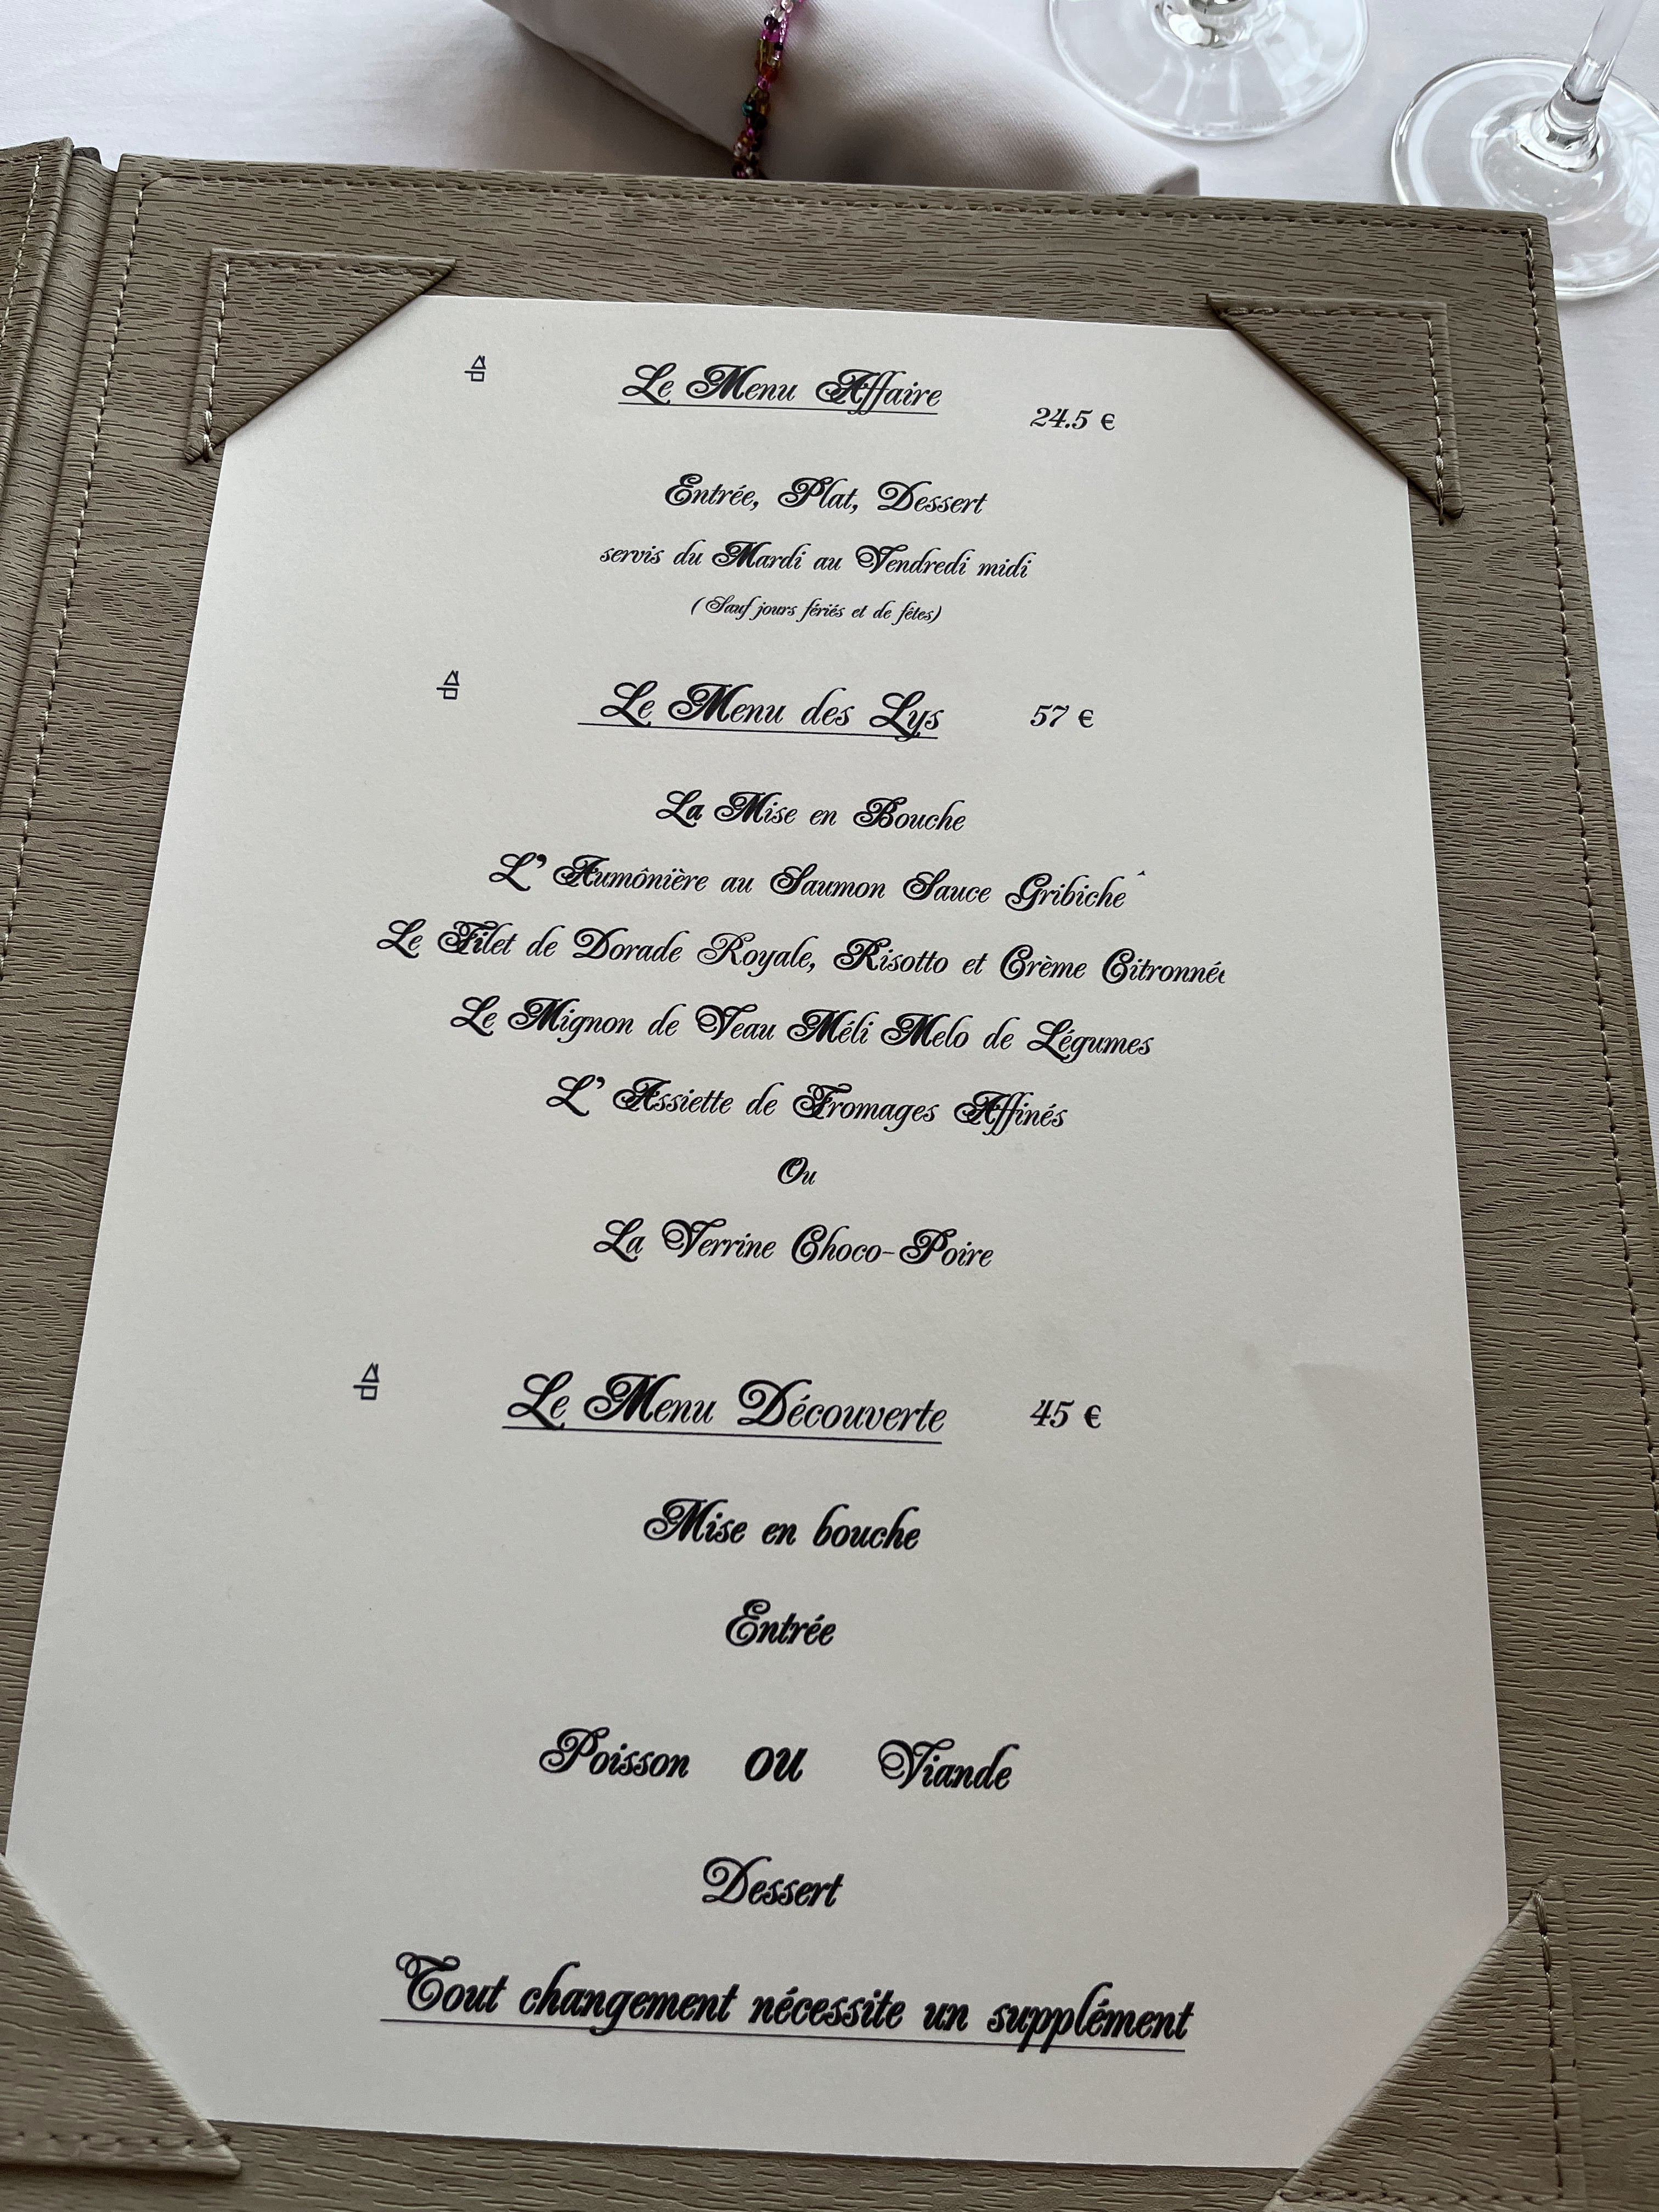 Le Menu Affaire
24.5 €
Entrée, Plat, Dessert
servis du Mardi au Vendredi midi
(Sauf jours fériés et de fêtes)
Le Menu des Lys 57 €
La Mise en Bouche
L' Aumônière au Saumon Sauce Gribiche ^
Le Filet de Dorade Royale, Risotto et Crème Citronnée
Le Mignon de Veau Méli Melo de Légumes
L' Assiette de Fromages Affinés
Ou
La Verrine Choco-Poire
Le Menu Découverte 45 €
Mise en bouche
Entrée
Poisson ou Viande
Dessert
Tout changement nécessite un supplément